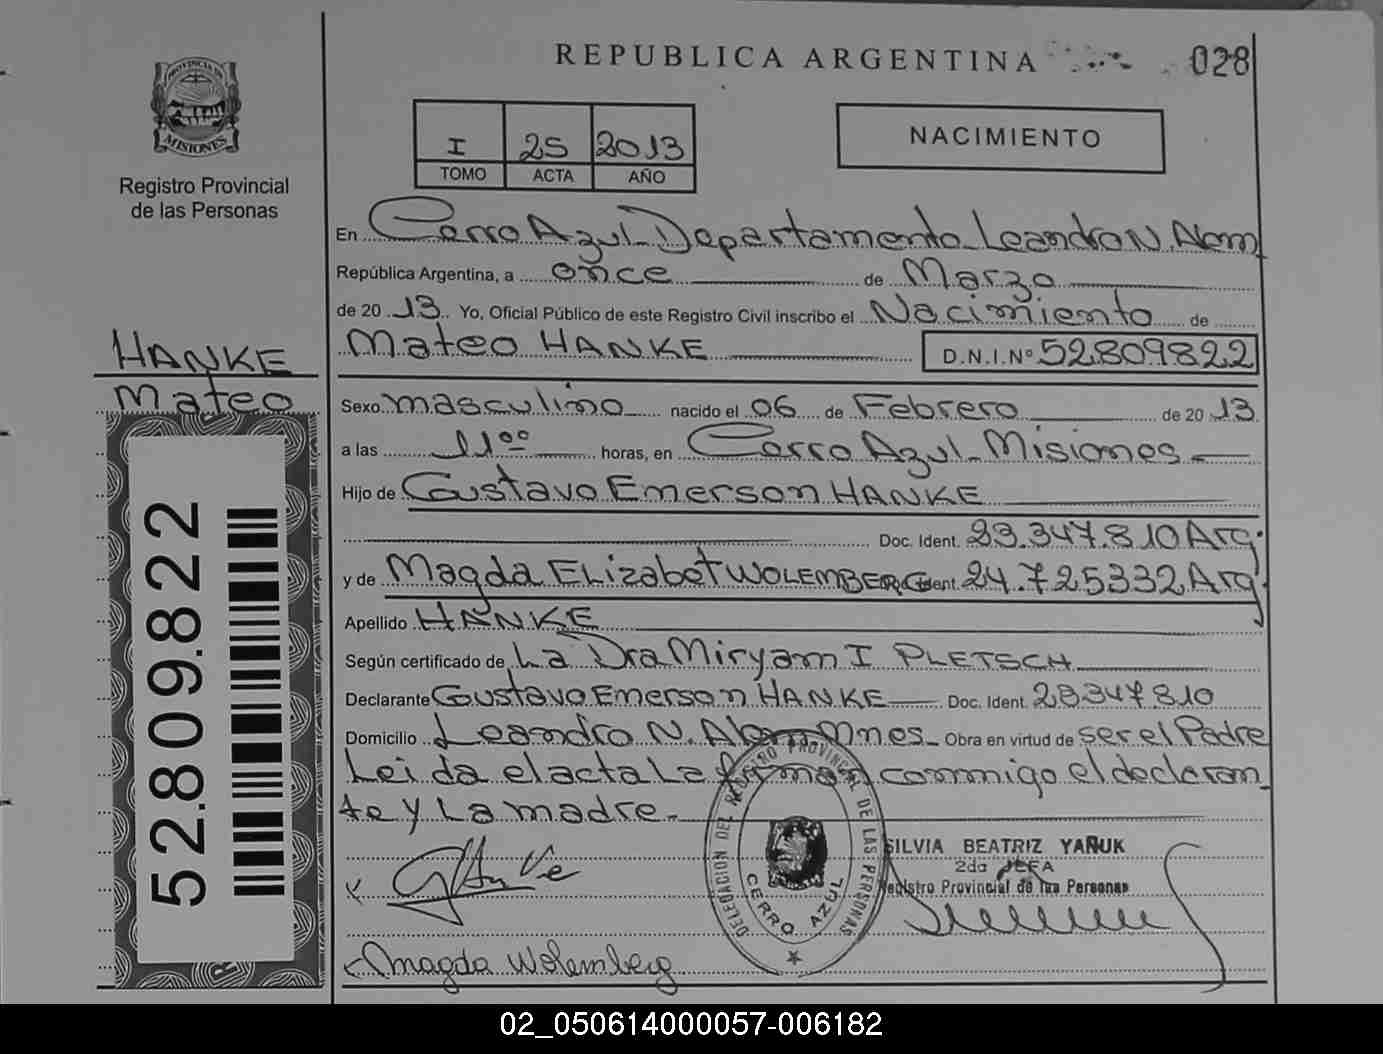 REPUBLICA ARGENTINA
028
PROVINCIA DE
MISIONES
Registro Provincial
de las Personas
I 25 2013
TOMO ACTA AÑO
NACIMIENTO
En Cerro Azul Departamento Leandro N. Alem
República Argentina, a once de Marzo
de 20 13 Yo, Oficial Público de este Registro Civil inscribo el Nacimiento de
Mateo HANKE D.N.I.Nº 52809822
HANKE
Mateo
Sexo masculino nacido el 06 de Febrero de 20 13
a las 11⁰⁰ horas, en Cerro Azul - Misiones
Hijo de Gustavo Emerson HANKE
Doc. Ident. 23.347.810 Arg.
y de Magda ELizabet WOLEMBERG Ident. 24.725332 Arg.
Apellido HANKE
Según certificado de La Dra Miryam I PLETSCH
Declarante Gustavo Emerson HANKE Doc. Ident. 23347810
Domicilio Leandro N. Alem Mnes - Obra en virtud de ser el Padre
Leida el acta La firman conmigo el declaran
te y La madre.
52.809.822
DELEGACION DEL REGISTRO PROVINCIAL DE LAS PERSONAS
CERRO AZUL
SILVIA BEATRIZ YAÑUK
2da JEFA
Registro Provincial de las Personas
Hanke
Magda Wolemberg
02_050614000057-006182